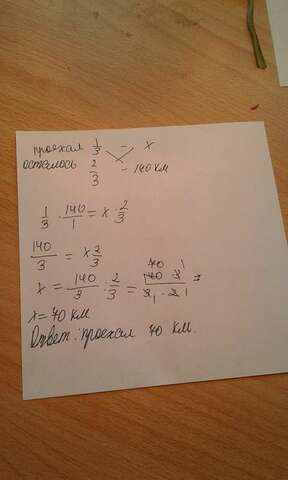 проехал 1/3 - x
осталось 2/3 - 140 км
1/3 · 140/1 = x · 2/3
140/3 = x 2/3
x = 140/3 : 2/3 = 140 · 3 / 3 · 2 = 70 1 1 1
x = 70 км
Ответ: проехал 70 км.